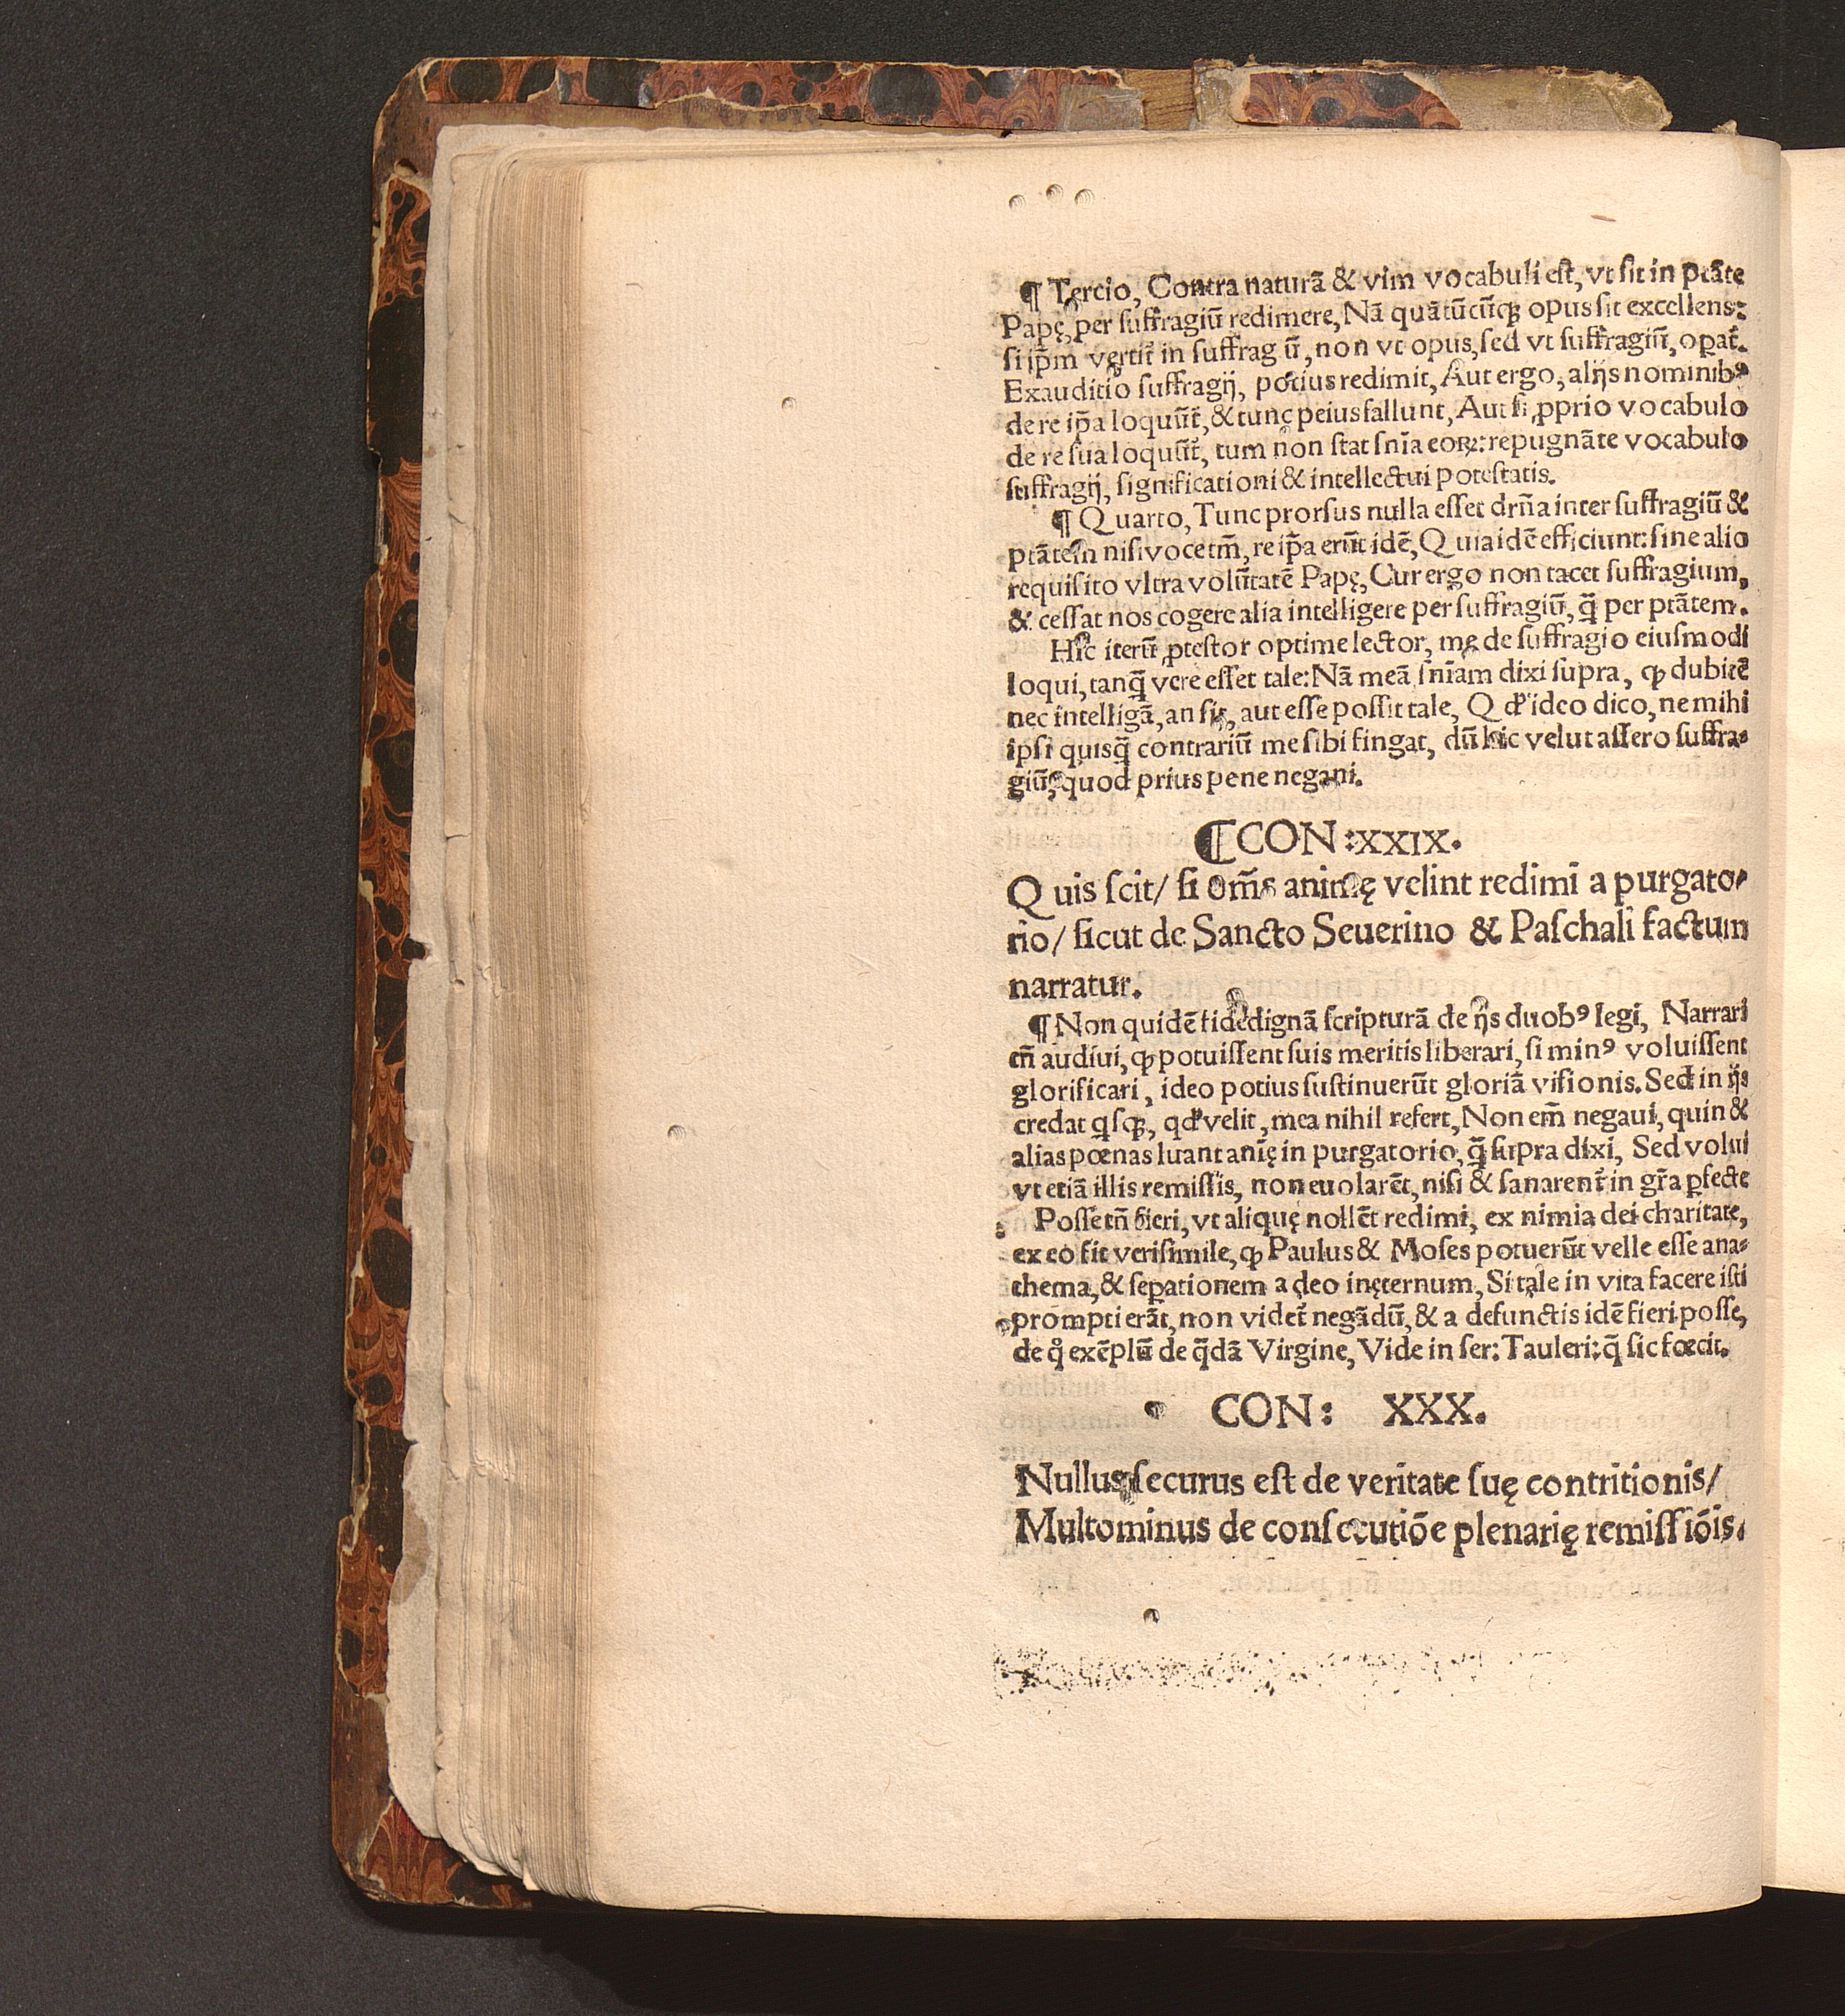 ¶ Tercio, Contra naturã & vim vocabuli eſt, vt ſit in ptãte
Papę, per ſuffragiũ redimere, Nã quãtũcũqꝫ opus ſit excellens:
ſi ip̃m vertit᷑ in ſuffrag ũ, non vt opus, ſed vt ſuffragiũ, oꝑat᷑.
Exauditio ſuffragij, potius redimit, Aut ergo, alijs nominibꝰ
de re ip̃a loquũt᷑, & tunc peius fallunt, Aut ſi ꝓprio vocabulo
de re ſua loquũt᷑, tum non ſtat ſnĩa eoꝝ: repugnãte vocabulo
ſuffragij, significationi & intellectui poteſtatis.
¶ Quarto, Tunc prorſus nulla eſſet drñ̃a inter ſuffragiũ &
ptãtem niſi vocetm̃, re ip̃a erũt idẽ, Quia idẽ efficiunt: ſine alio
requiſito vltra volũtatẽ Papę, Cur ergo non tacet ſuffragium,
& ceſſat nos cogere alia intelligere per ſuffragiũ, q̃ per ptãtem.
Hic iterũ ꝓteſtor optime lector, me de ſuffragio eiuſmodi
loqui, tanq̃ vere eſſet tale: Nã meã ſnĩam dixi ſupra, ꝙ dubitẽ
nec intelligã, an ſit, aut eſſe poſſit tale, Qď ideo dico, ne mihi
ipſi quisq̃ contrariũ me ſibi fingat, dũ hic velut aſſero ſuffra⸗
giũ, quod prius pene negaui.
¶CON: XXIX.
Quis ſcit/ ſi om̃s animę velint redimi a purgato⸗
rio/ ſicut de Sancto Seuerino & Paſchali factum
narratur.
¶ Non quidẽ fide dignã ſcripturã de ijs duobꝰ legi, Narrari
tñ audiui, ꝙ potuiſſent ſuis meritis liberari, ſi minꝰ voluiſſent
glorificari, ideo potius ſuſtinuerũt gloriã viſionis. Sed in ijs
credat qͥſqꝫ, qď velit, mea nihil refert, Non em̃ negaui, quin &
alias pœnas luant anĩę in purgatorio, q̃ ſupra dixi, Sed volui
vt etiã illis remiſſis, non euolarẽt, niſi & ſanarent᷑ in gr̃a ꝑfecte
Poſſe tñ fieri, vt aliquę nollẽt redimi, ex nimia dei charitate,
ex eo fit veriſimile, ꝙ Paulus & Moſes potuerũt velle eſſe ana⸗
thema, & ſeꝑationem a deo inęternum, Si tale in vita facere iſti
prompti erãt, non videt᷑ negãdũ, & a defunctis idẽ fieri poſſe,
de qͦ exẽplũ de q̃dã Virgine, Vide in ſer: Tauleri: q̃ ſic fœcit.
CON: XXX.
Nullus ſecurus eſt de veritate ſuę contritionis/
Multominus de conſecutiõe plenarię remiſſiõis.